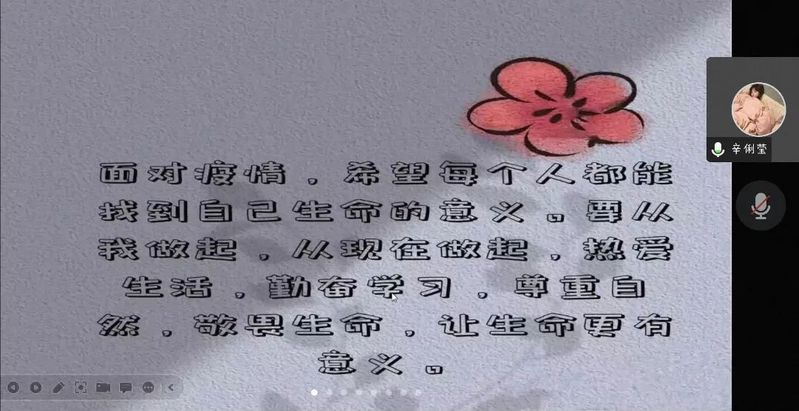 面对疫情，希望每个人都能
找到自己生命的意义。要从
我做起，从现在做起，热爱
生活，勤奋学习，尊重自
然，敬畏生命，让生命更有
意义。
辛俐莹